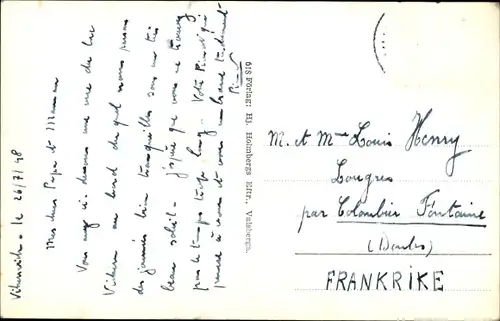 Vikersvik le 26/7/48
Mes chers Papa et Maman
Vous avez ci-dessus une vue du lac
Vikern au bord duquel nous passons
des journées bien tranquilles sous un très
beau soleil. J'espère que vous ne trouvez
pas le temps trop long. Votre Pierrot qui
pense à vous et vous embrasse tendrement
618 Förlag: Hj. Holmbergs Eftr., Valsberga.
M. et Mme Louis Henry
Longres
par Colombier Fontaine
(Doubs)
FRANKRIKE